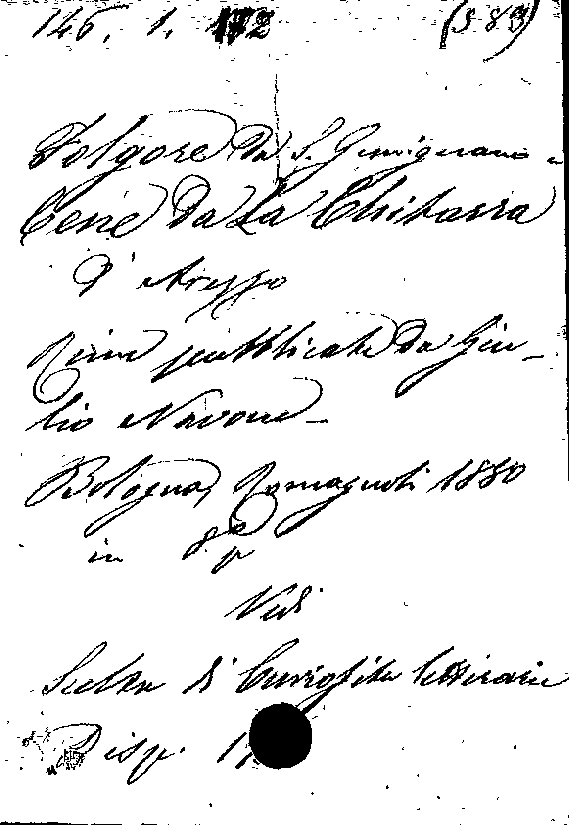 146. 1. 172 (583)
Folgore da S. Gemignano e
Cene Da La Chitarra
d' Arezzo
Rime pubblicate Da Giu-
lio Navone_
Bologna, Romagnoli 1880
in 8º
Vedi
Scelta di Curiosità letterarie
Disp. 17